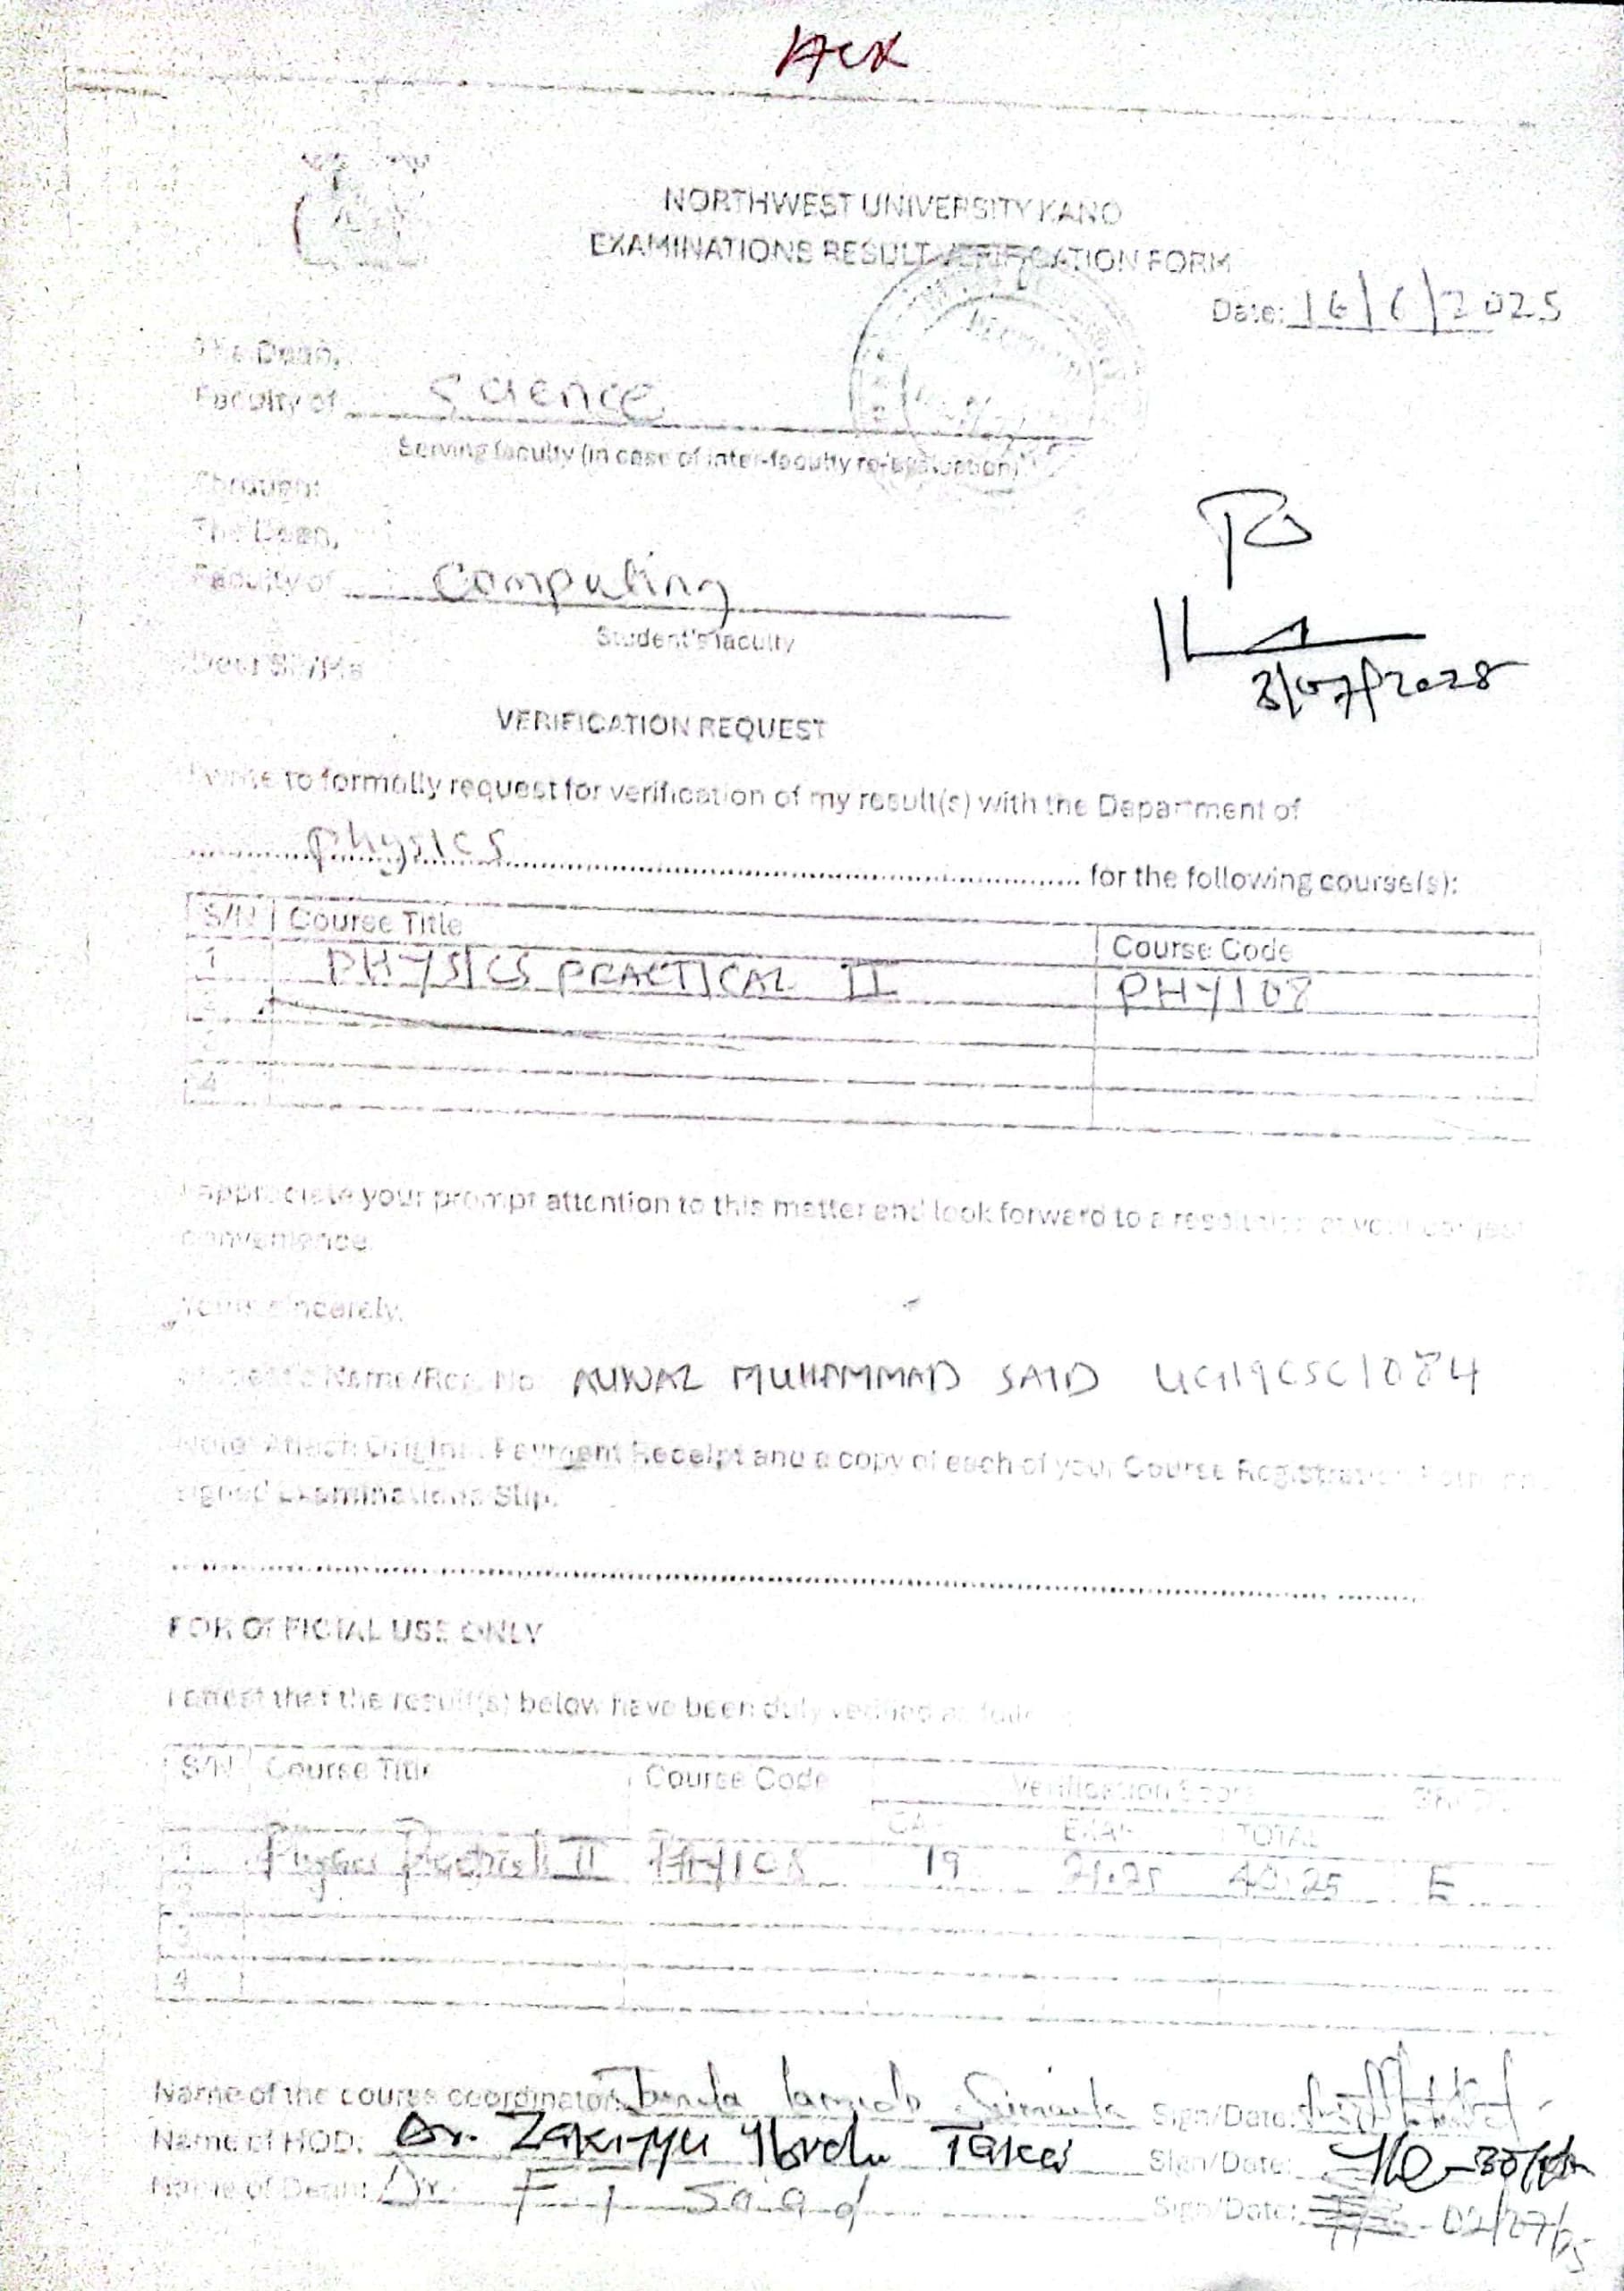 NORTHWEST UNIVERSITY KANO
EXAMINATIONS RESULT VERIFICATION FORM
Date: 16/6/2025
The Dean,
Faculty of Science
Serving faculty (in case of inter-faculty re-evaluation)
Through:
The Dean,
Faculty of Computing
Student's faculty
Dear Sir/Ma
VERIFICATION REQUEST
I write to formally request for verification of my result(s) with the Department of
Physics for the following course(s):
S/N Course Title Course Code
1 PHYSICS PRACTICAL II PHY108
2
3
4
I appreciate your prompt attention to this matter and look forward to a resolution at your earliest
convenience.
Yours sincerely,
Student's Name/Reg. No: AUWAL MUHAMMAD SAID UG19CSC1084
Note: Attach Original Payment Receipt and a copy of each of your Course Registration Form and
signed Examinations Slip.
FOR OFFICIAL USE ONLY
I attest that the result(s) below have been duly verified as follows
S/N Course Title Course Code Verification Score GRADE
CA EXAM TOTAL
1 Physics Practical II PHY108 19 21.25 40.25 E
2
3
4
Name of the course coordinator: Sign/Date:
Name of HOD: Dr. Zakiyyu Takai Sign/Date:
Name of Dean: Dr. F. I. Sa'ad Sign/Date: 02/07/25